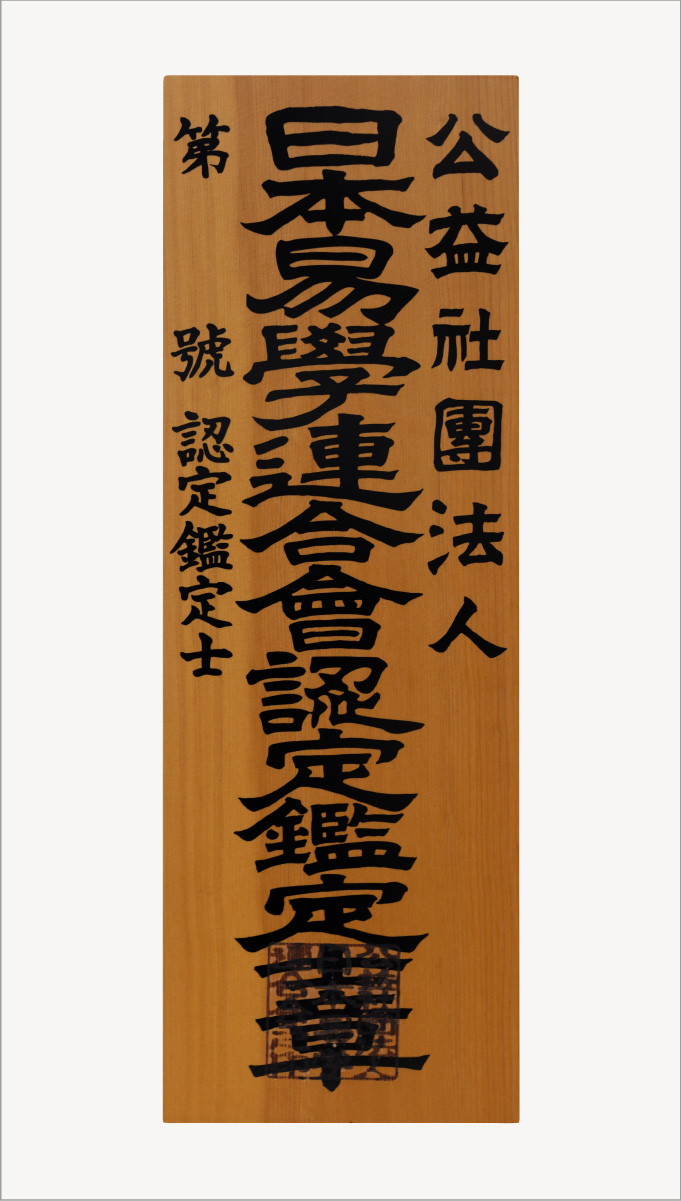 公益社團法人
日本易學連合會認定鑑定士章
第　號　認定鑑定士